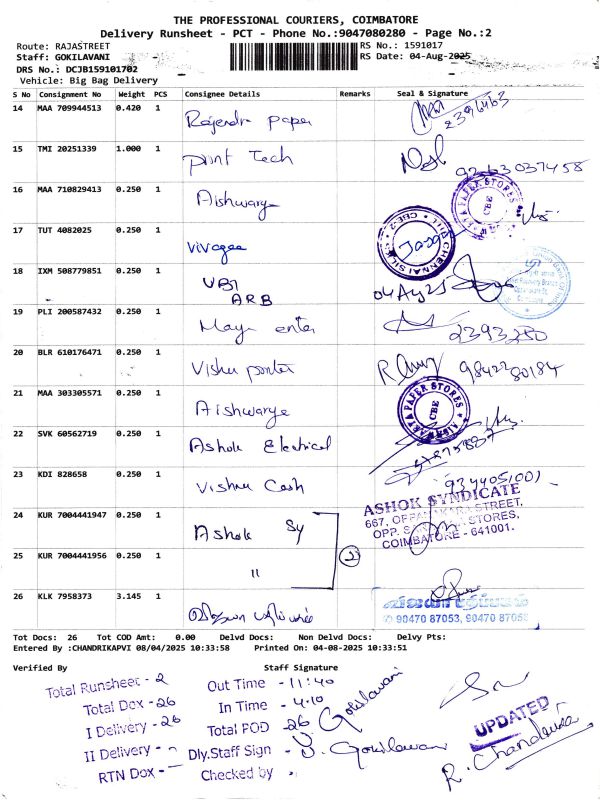 THE PROFESSIONAL COURIERS, COIMBATORE
Delivery Runsheet - PCT - Phone No.:9047080280 - Page No.:2
Route: RAJASTREET
RS No.: 1591017
Staff: GOKILAVANI
RS Date: 04-Aug-2025
DRS No.: DCJB159101702
Vehicle: Big Bag Delivery
S No Consignment No Weight PCS Consignee Details Remarks Seal & Signature
14 MAA 709944513 0.420 1 Rajendra paper 2396463
15 TMI 20251339 1.000 1 print Tech 9263037458
16 MAA 710829413 0.250 1 Aishwarya
17 TUT 4082025 0.250 1 vivagaa
18 IXM 508779851 0.250 1 UBI
ARB 04 Aug 25
19 PLI 200587432 0.250 1 Maya enter 2393280
20 BLR 610176471 0.250 1 Vishnu printer 9842280184
21 MAA 303305571 0.250 1 Aishwarya
22 SVK 60562719 0.250 1 Ashok Electrical
23 KDI 828658 0.250 1 Vishnu Cash 9344051001
24 KUR 7004441947 0.250 1 Ashok Sy
ASHOK SYNDICATE
667, STREET,
OPP. STORES,
COIMBATORE - 641001.
25 KUR 7004441956 0.250 1 " 2
26 KLK 7958373 3.145 1
90470 87053, 90470 87058
Tot Docs: 26 Tot COD Amt: 0.00 Delvd Docs: Non Delvd Docs: Delvy Pts:
Entered By :CHANDRIKAPVI 08/04/2025 10:33:58 Printed On: 04-08-2025 10:33:51
Verified By Staff Signature
Total Runsheet - 2
Total Dox - 26
I Delivery - 26
II Delivery -
RTN Dox -
Out Time - 11:40
In Time - 4.10
Total POD - 26
Dly.Staff Sign -
Checked by
Gokilavani
D. Gokilavani
UPDATED
R. Chandrika